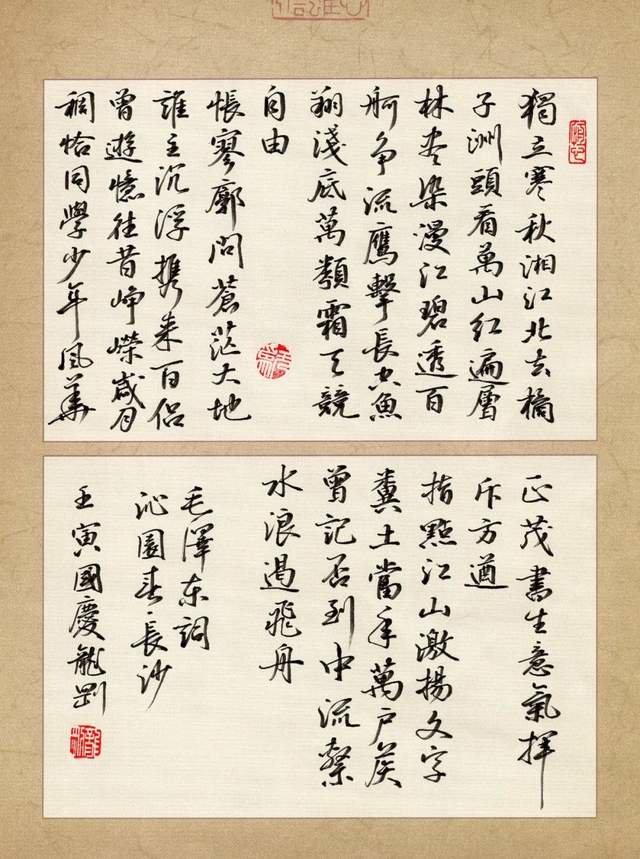 獨立寒秋湘江北去橘
子洲頭看萬山紅遍層
林盡染漫江碧透百
舸争流鷹擊長空魚
翔淺底萬類霜天競
自由
悵寥廓問蒼茫大地
誰主沉浮携來百侣
曾遊憶往昔崢嶸歲月
稠恰同學少年風華
正茂書生意氣揮
斥方遒
指點江山激揚文字
糞土當年萬户侯
曾記否到中流擊
水浪遏飛舟
毛澤東詞
沁園春長沙
壬寅國慶龍剛